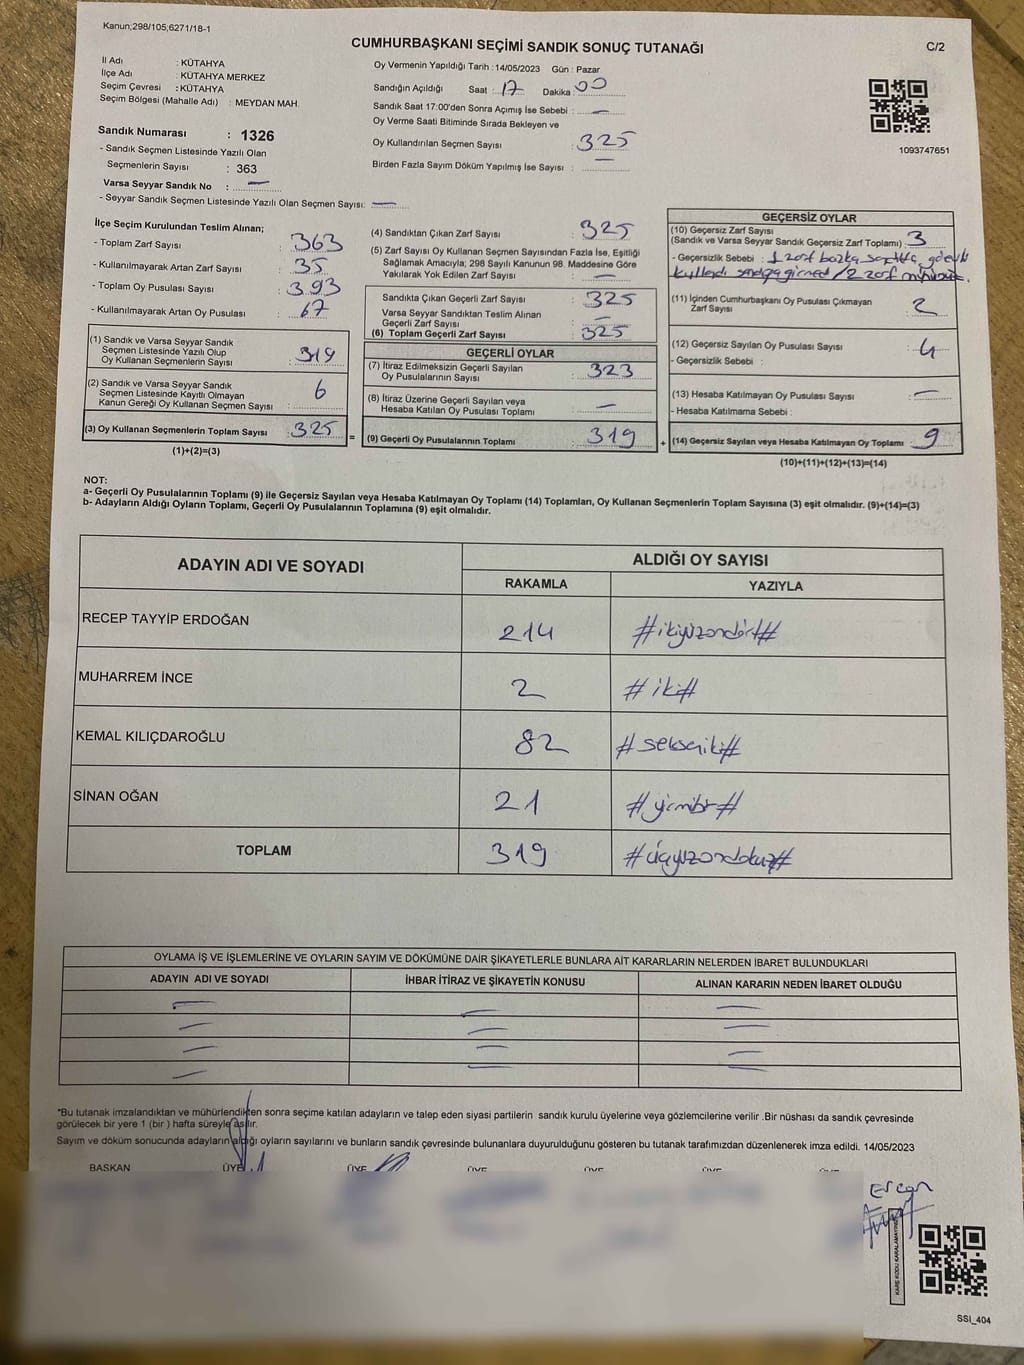 Kanun;298/105;6271/18-1
CUMHURBAŞKANI SEÇİMİ SANDIK SONUÇ TUTANAĞI
C/2
İl Adı : KÜTAHYA
İlçe Adı : KÜTAHYA MERKEZ
Seçim Çevresi : KÜTAHYA
Seçim Bölgesi (Mahalle Adı) : MEYDAN MAH.
Sandık Numarası : 1326
- Sandık Seçmen Listesinde Yazılı Olan
Seçmenlerin Sayısı : 363
Varsa Seyyar Sandık No : —
- Seyyar Sandık Seçmen Listesinde Yazılı Olan Seçmen Sayısı: —
Oy Vermenin Yapıldığı Tarih : 14/05/2023 Gün : Pazar
Sandığın Açıldığı Saat : 17 Dakika : 00
Sandık Saat 17:00'den Sonra Açımış İse Sebebi : —
Oy Verme Saati Bitiminde Sırada Bekleyen ve
Oy Kullandırılan Seçmen Sayısı : 325
Birden Fazla Sayım Döküm Yapılmış İse Sayısı : —
1093747651
İlçe Seçim Kurulundan Teslim Alınan;
- Toplam Zarf Sayısı : 363
- Kullanılmayarak Artan Zarf Sayısı : 35
- Toplam Oy Pusulası Sayısı : 393
- Kullanılmayarak Artan Oy Pusulası : 67
(1) Sandık ve Varsa Seyyar Sandık
Seçmen Listesinde Yazılı Olup
Oy Kullanan Seçmenlerin Sayısı : 319
(2) Sandık ve Varsa Seyyar Sandık
Seçmen Listesinde Kayıtlı Olmayan
Kanun Gereği Oy Kullanan Seçmen Sayısı : 6
(3) Oy Kullanan Seçmenlerin Toplam Sayısı : 325
(1)+(2)=(3)
(4) Sandıktan Çıkan Zarf Sayısı : 325
(5) Zarf Sayısı Oy Kullanan Seçmen Sayısından Fazla İse, Eşitliği
Sağlamak Amacıyla; 298 Sayılı Kanunun 98. Maddesine Göre
Yakılarak Yok Edilen Zarf Sayısı : —
Sandıkta Çıkan Geçerli Zarf Sayısı : 325
Varsa Seyyar Sandıktan Teslim Alınan
Geçerli Zarf Sayısı : —
(6) Toplam Geçerli Zarf Sayısı : 325
GEÇERLİ OYLAR
(7) İtiraz Edilmeksizin Geçerli Sayılan
Oy Pusulalarının Sayısı : 323
(8) İtiraz Üzerine Geçerli Sayılan veya
Hesaba Katılan Oy Pusulası Toplamı : —
(9) Geçerli Oy Pusulalarının Toplamı : 319
=
+
GEÇERSİZ OYLAR
(10) Geçersiz Zarf Sayısı
(Sandık ve Varsa Seyyar Sandık Geçersiz Zarf Toplamı) : 3
- Geçersizlik Sebebi : 1 zarf başka sandıkta görevli
kullandı sandığa girmedi / 2 zarf mühürsüz.
(11) İçinden Cumhurbaşkanı Oy Pusulası Çıkmayan
Zarf Sayısı : 2
(12) Geçersiz Sayılan Oy Pusulası Sayısı : 4
- Geçersizlik Sebebi :
(13) Hesaba Katılmayan Oy Pusulası Sayısı : —
- Hesaba Katılmama Sebebi :
(14) Geçersiz Sayılan veya Hesaba Katılmayan Oy Toplamı : 9
(10)+(11)+(12)+(13)=(14)
NOT:
a- Geçerli Oy Pusulalarının Toplamı (9) ile Geçersiz Sayılan veya Hesaba Katılmayan Oy Toplamı (14) Toplamları, Oy Kullanan Seçmenlerin Toplam Sayısına (3) eşit olmalıdır. (9)+(14)=(3)
b- Adayların Aldığı Oyların Toplamı, Geçerli Oy Pusulalarının Toplamına (9) eşit olmalıdır.
ADAYIN ADI VE SOYADI
ALDIĞI OY SAYISI
RAKAMLA YAZIYLA
RECEP TAYYİP ERDOĞAN 214 #ikiyüzondört#
MUHARREM İNCE 2 #iki#
KEMAL KILIÇDAROĞLU 82 #sekseniki#
SİNAN OĞAN 21 #yirmibir#
TOPLAM 319 #üçyüzondokuz#
OYLAMA İŞ VE İŞLEMLERİNE VE OYLARIN SAYIM VE DÖKÜMÜNE DAİR ŞİKAYETLERLE BUNLARA AİT KARARLARIN NELERDEN İBARET BULUNDUKLARI
ADAYIN ADI VE SOYADI İHBAR İTİRAZ VE ŞİKAYETİN KONUSU ALINAN KARARIN NEDEN İBARET OLDUĞU
— — —
— — —
— — —
— —
*Bu tutanak imzalandıktan ve mühürlendikten sonra seçime katılan adayların ve talep eden siyasi partilerin sandık kurulu üyelerine veya gözlemcilerine verilir .Bir nüshası da sandık çevresinde
görülecek bir yere 1 (bir ) hafta süreyle asılır.
Sayım ve döküm sonucunda adayların aldığı oyların sayılarını ve bunların sandık çevresinde bulunanlara duyurulduğunu gösteren bu tutanak tarafımızdan düzenlenerek imza edildi. 14/05/2023
BAŞKAN ÜYE ÜYE ÜYE ÜYE ÜYE ÜYE
Ercan
KARE KODU KARALAMAYINIZ
SSI_404